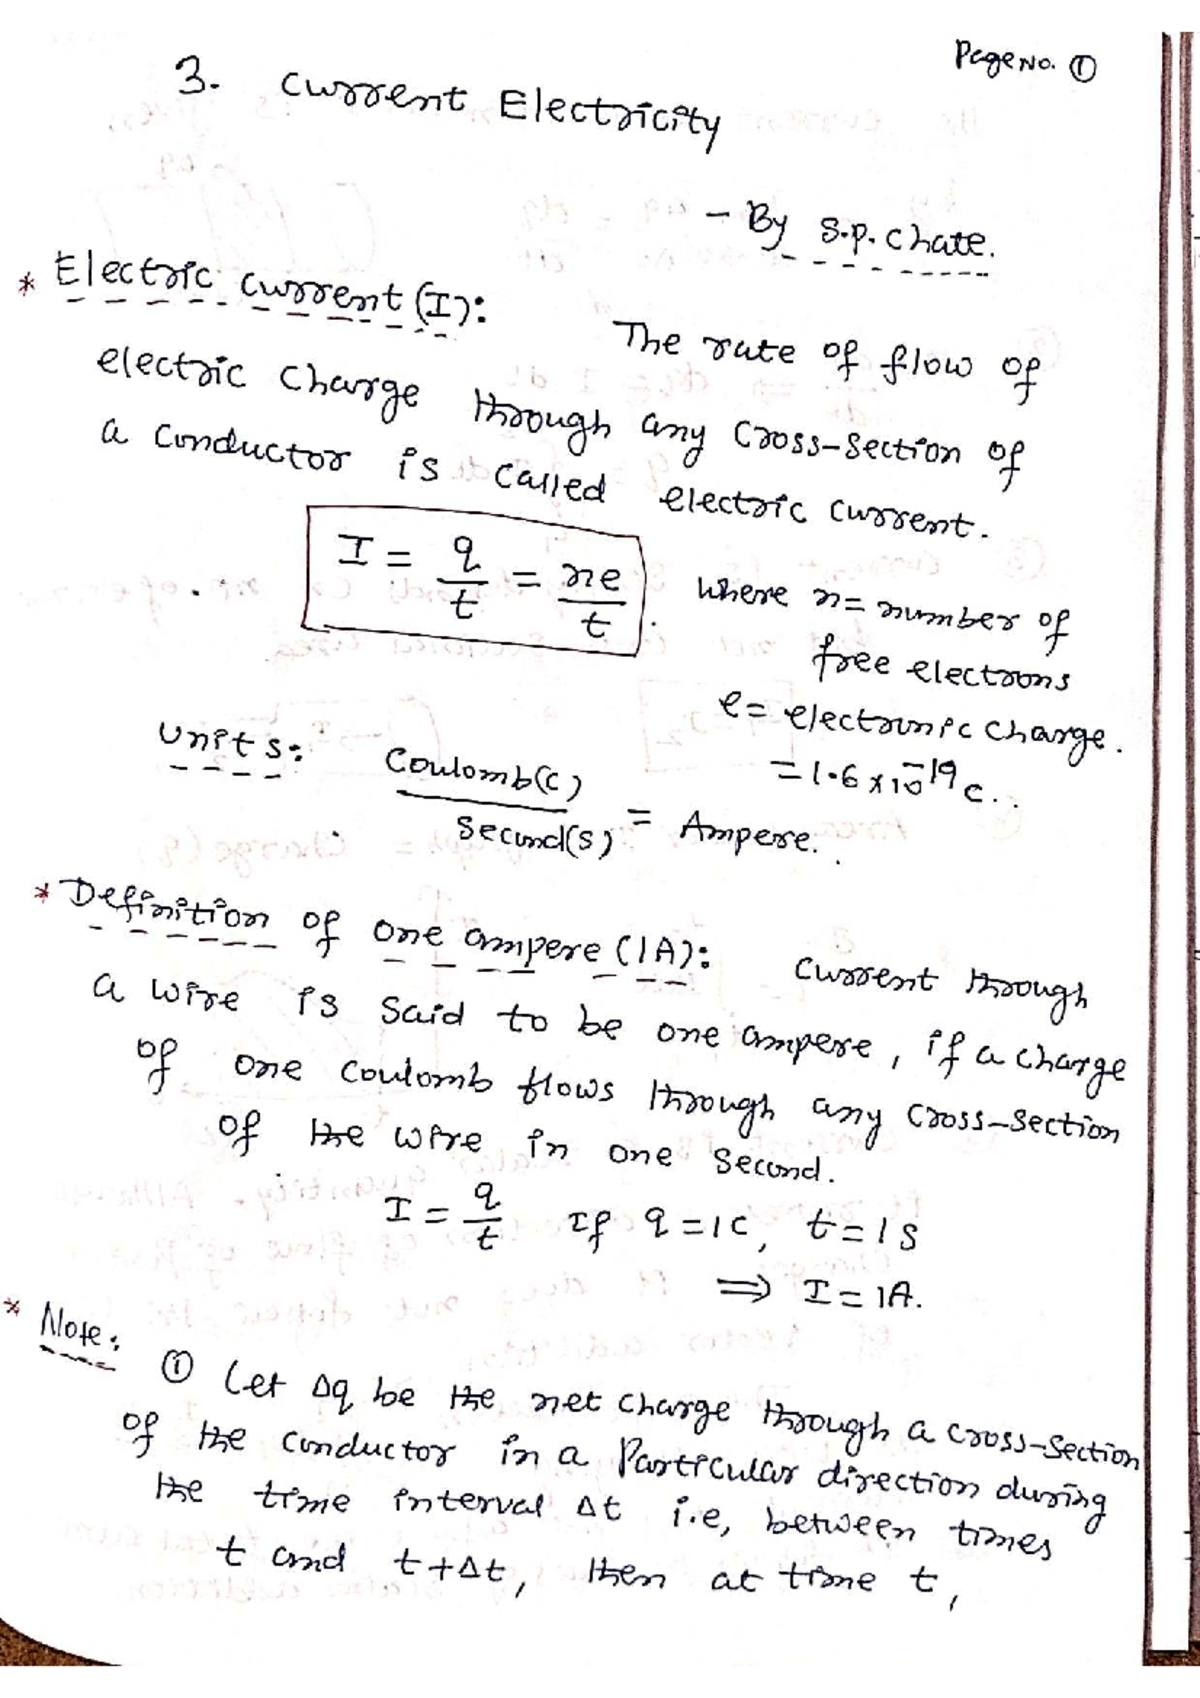 Page No. ①
3. Current Electricity
- By S.P. Chate.
* Electric current (I): The rate of flow of
electric charge through any cross-section of
a conductor is called electric current.
I = q/t = ne/t . where n = number of
free electrons
e = electronic charge.
= 1.6 x 10^-19 C.
Units: Coulomb(C)/Second(S) = Ampere.
* Definition of one ampere (1A): Current through
a wire is said to be one ampere, if a charge
of one coulomb flows through any cross-section
of the wire in one second.
I = q/t If q = 1C, t = 1S
⇒ I = 1A.
* Note:
① Let Δq be the net charge through a cross-section
of the conductor in a Particular direction during
the time interval Δt i.e, between times
t and t+Δt, then at time t,